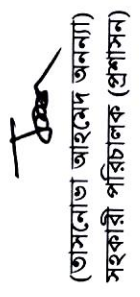 (তাসনোভা আহমেদ অনন্যা)
সহকারী পরিচালক (প্রশাসন)